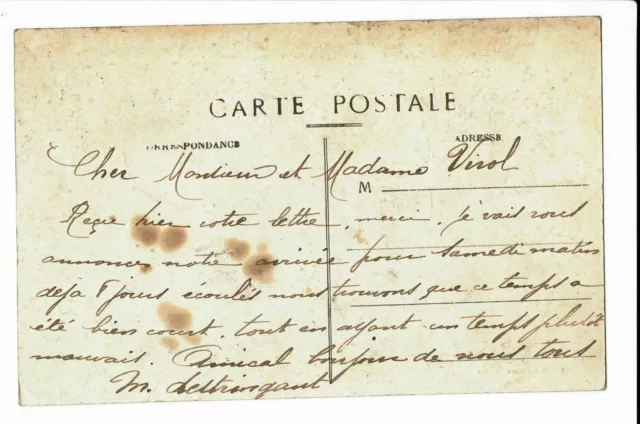 CARTE POSTALE
CORRESPONDANCE
ADRESSE
Cher Monsieur et Madame Virol
M
Reçu hier votre lettre, merci, je vais vous
annoncer notre arrivée pour samedi matin
deja 8 jours écoulés nous trouvons que ce temps a
été bien court, tout en ayant un temps plutôt
mauvais. Amical bonjour de nous tous
M. Lestringant